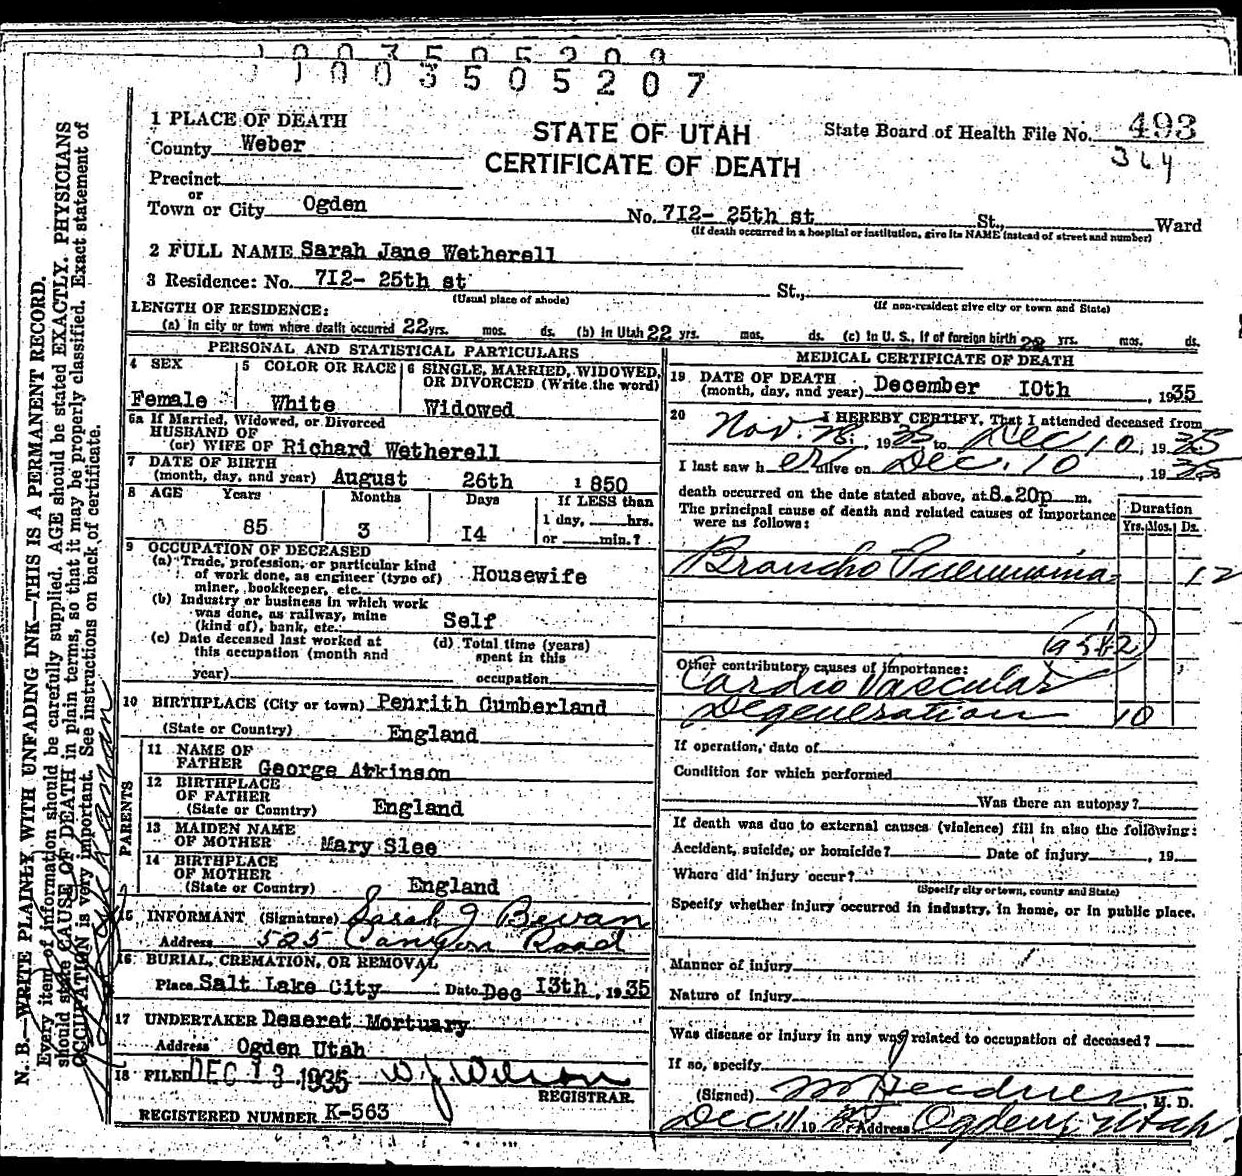 1003505209
1003505207
1 PLACE OF DEATH
County Weber
Precinct
or
Town or City Ogden
STATE OF UTAH
CERTIFICATE OF DEATH
State Board of Health File No. 493
364
No. 7I2- 25th st St., Ward
(If death occurred in a hospital or institution, give its NAME instead of street and number)
2 FULL NAME Sarah Jane Wetherell
3 Residence: No. 7I2- 25th st St.,
(Usual place of abode) (If non-resident give city or town and State)
LENGTH OF RESIDENCE:
(a) In city or town where death occurred 22 yrs. mos. ds. (b) In Utah 22 yrs. mos. ds. (c) In U. S., if of foreign birth 22 yrs. mos. ds.
PERSONAL AND STATISTICAL PARTICULARS
4 SEX
Female
5 COLOR OR RACE
White
6 SINGLE, MARRIED, WIDOWED,
OR DIVORCED (Write the word)
Widowed
6a If Married, Widowed, or Divorced
HUSBAND OF
(or) WIFE OF Richard Wetherell
7 DATE OF BIRTH
(month, day, and year) August 26th 1850
8 AGE Years Months Days If LESS than
1 day, hrs.
85 3 I4 or min.?
9 OCCUPATION OF DECEASED
(a) Trade, profession, or particular kind
of work done, as engineer (type of)
miner, bookkeeper, etc. Housewife
(b) Industry or business in which work
was done, as railway, mine
(kind of), bank, etc. Self
(c) Date deceased last worked at
this occupation (month and
year)
(d) Total time (years)
spent in this
occupation
10 BIRTHPLACE (City or town) Penrith Cumberland
(State or Country) England
PARENTS
11 NAME OF
FATHER George Atkinson
12 BIRTHPLACE
OF FATHER
(State or Country) England
13 MAIDEN NAME
OF MOTHER Mary Slee
14 BIRTHPLACE
OF MOTHER
(State or Country) England
15 INFORMANT (Signature) Sarah J Bevan
Address 525 Canyon Road
16 BURIAL, CREMATION, OR REMOVAL
Place Salt Lake City Date Dec I3th, 1935
17 UNDERTAKER Deseret Mortuary
Address Ogden Utah
18 FILED DEC 13 1935 W. J. Wilson
REGISTRAR.
REGISTERED NUMBER K-563
MEDICAL CERTIFICATE OF DEATH
19 DATE OF DEATH
(month, day, and year) December I0th, 1935
20 I HEREBY CERTIFY, That I attended deceased from
Nov. 28, 1935 to Dec 10, 1935
I last saw her alive on Dec. 10, 1935
death occurred on the date stated above, at 8.20p m.
The principal cause of death and related causes of importance
were as follows:
Duration
Yrs. Mos. Ds.
Broncho Pneumonia 12
Other contributory causes of importance:
Cardio Vascular
Degeneration 10
If operation, date of
Condition for which performed
Was there an autopsy?
If death was due to external causes (violence) fill in also the following:
Accident, suicide, or homicide? Date of injury , 19
Where did injury occur?
(Specify city or town, county and State)
Specify whether injury occurred in industry, in home, or in public place.
Manner of injury
Nature of injury
Was disease or injury in any way related to occupation of deceased?
If so, specify
(Signed) M. D.
Dec. 11 1935 Address Ogden, Utah.
N. B.—WRITE PLAINLY, WITH UNFADING INK—THIS IS A PERMANENT RECORD.
Every item of information should be carefully supplied. AGE should be stated EXACTLY. PHYSICIANS
should state CAUSE OF DEATH in plain terms, so that it may be properly classified. Exact statement of
OCCUPATION is very important. See instructions on back of certificate.